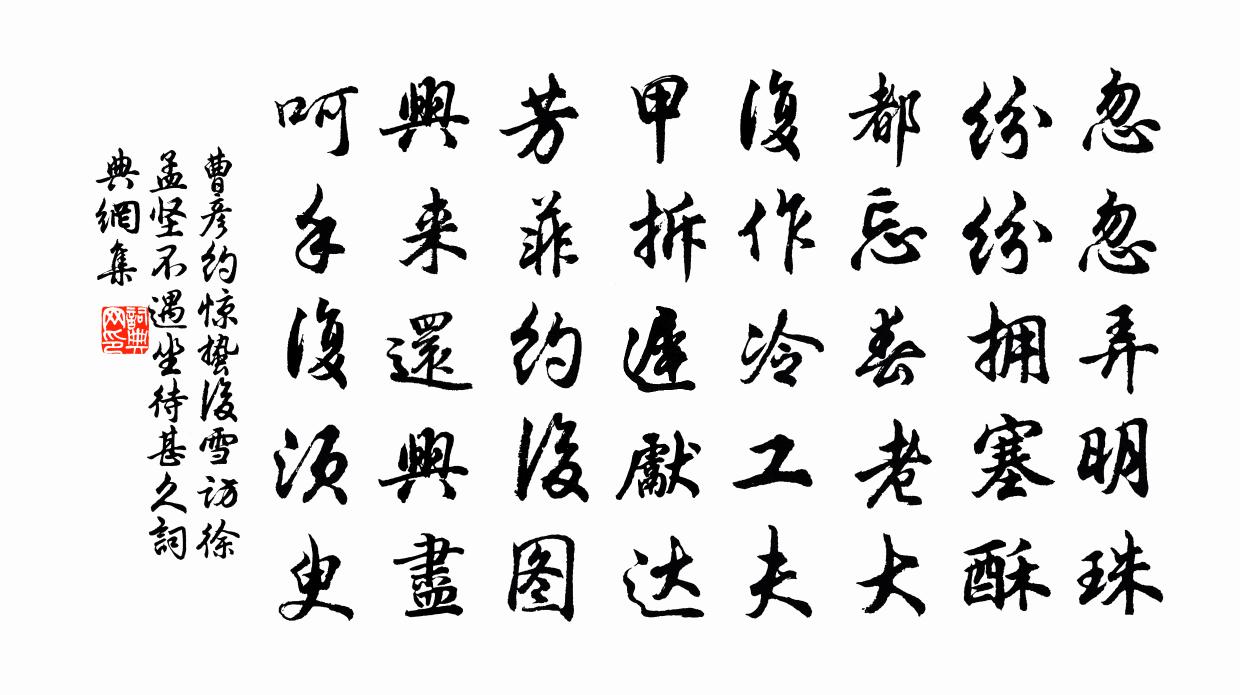 忽忽弄明珠
纷纷拥塞酥
都忘春老大
復作冷工夫
甲拆遲獻达
芳菲约後图
興来還興盡
呵手復须臾
曹彦约惊蛰後雪访徐
孟坚不遇坐待甚久詞
典網集
詞典
网印